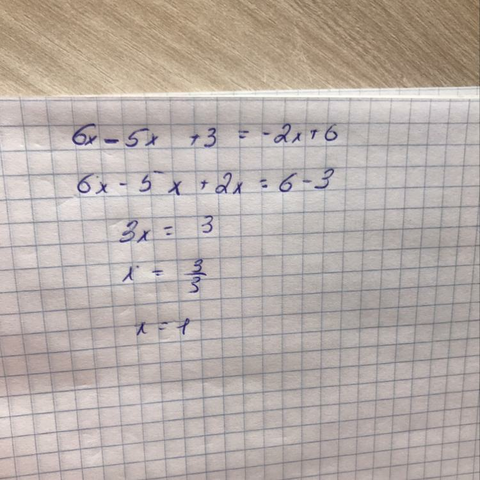 6x - 5x + 3 = -2x + 6
6x - 5x + 2x = 6 - 3
3x = 3
x = 3/3
x = 1